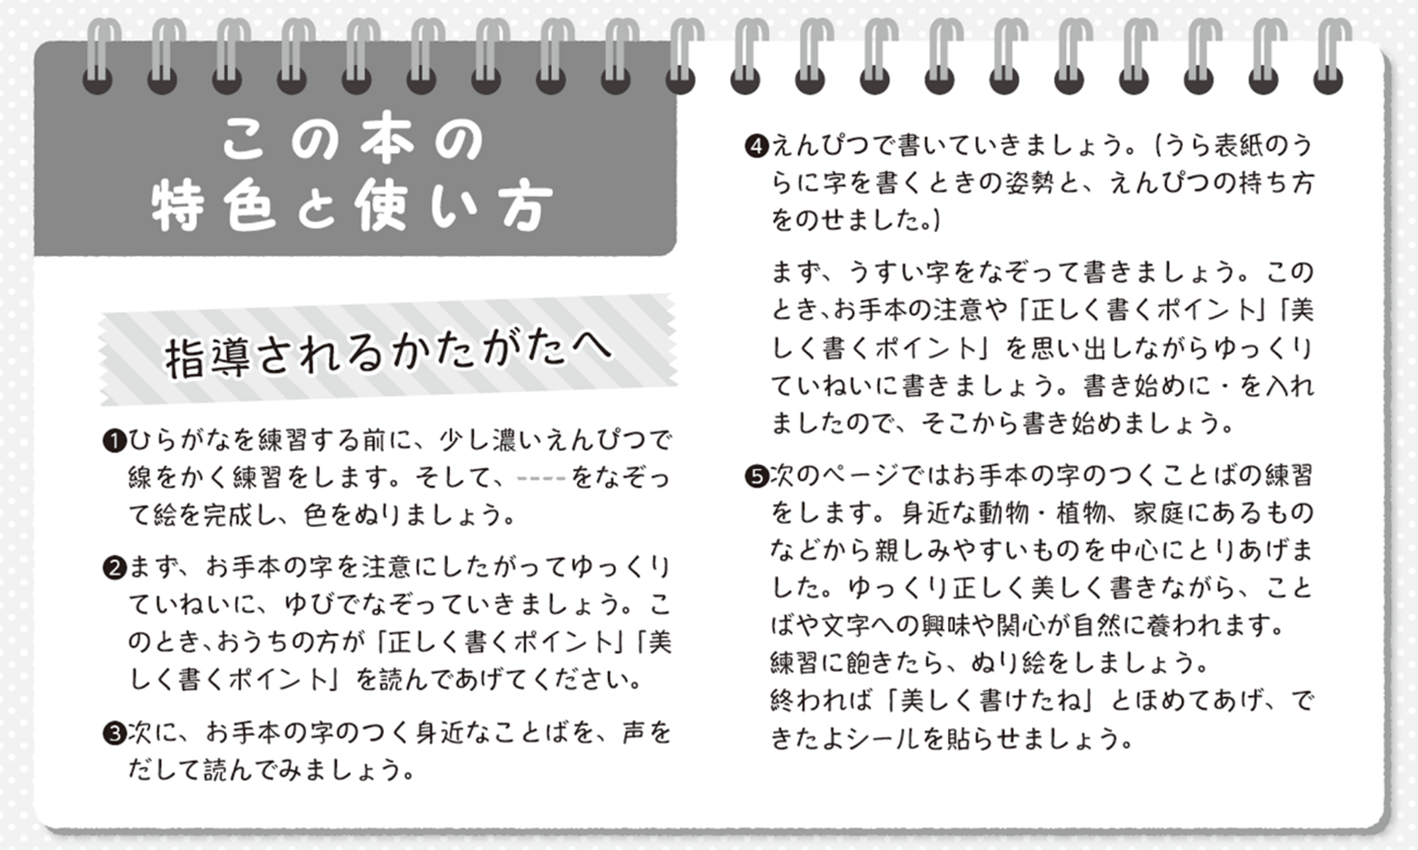 この本の
特色と使い方
指導されるかたがたへ
❶ひらがなを練習する前に、少し濃いえんぴつで
線をかく練習をします。そして、----をなぞっ
て絵を完成し、色をぬりましょう。
❷まず、お手本の字を注意にしたがってゆっくり
ていねいに、ゆびでなぞっていきましょう。こ
のとき、おうちの方が「正しく書くポイント」「美
しく書くポイント」を読んであげてください。
❸次に、お手本の字のつく身近なことばを、声を
だして読んでみましょう。
❹えんぴつで書いていきましょう。(うら表紙のう
らに字を書くときの姿勢と、えんぴつの持ち方
をのせました。)
まず、うすい字をなぞって書きましょう。この
とき、お手本の注意や「正しく書くポイント」「美
しく書くポイント」を思い出しながらゆっくり
ていねいに書きましょう。書き始めに・を入れ
ましたので、そこから書き始めましょう。
❺次のページではお手本の字のつくことばの練習
をします。身近な動物・植物、家庭にあるもの
などから親しみやすいものを中心にとりあげま
した。ゆっくり正しく美しく書きながら、こと
ばや文字への興味や関心が自然に養われます。
練習に飽きたら、ぬり絵をしましょう。
終われば「美しく書けたね」とほめてあげ、で
きたよシールを貼らせましょう。